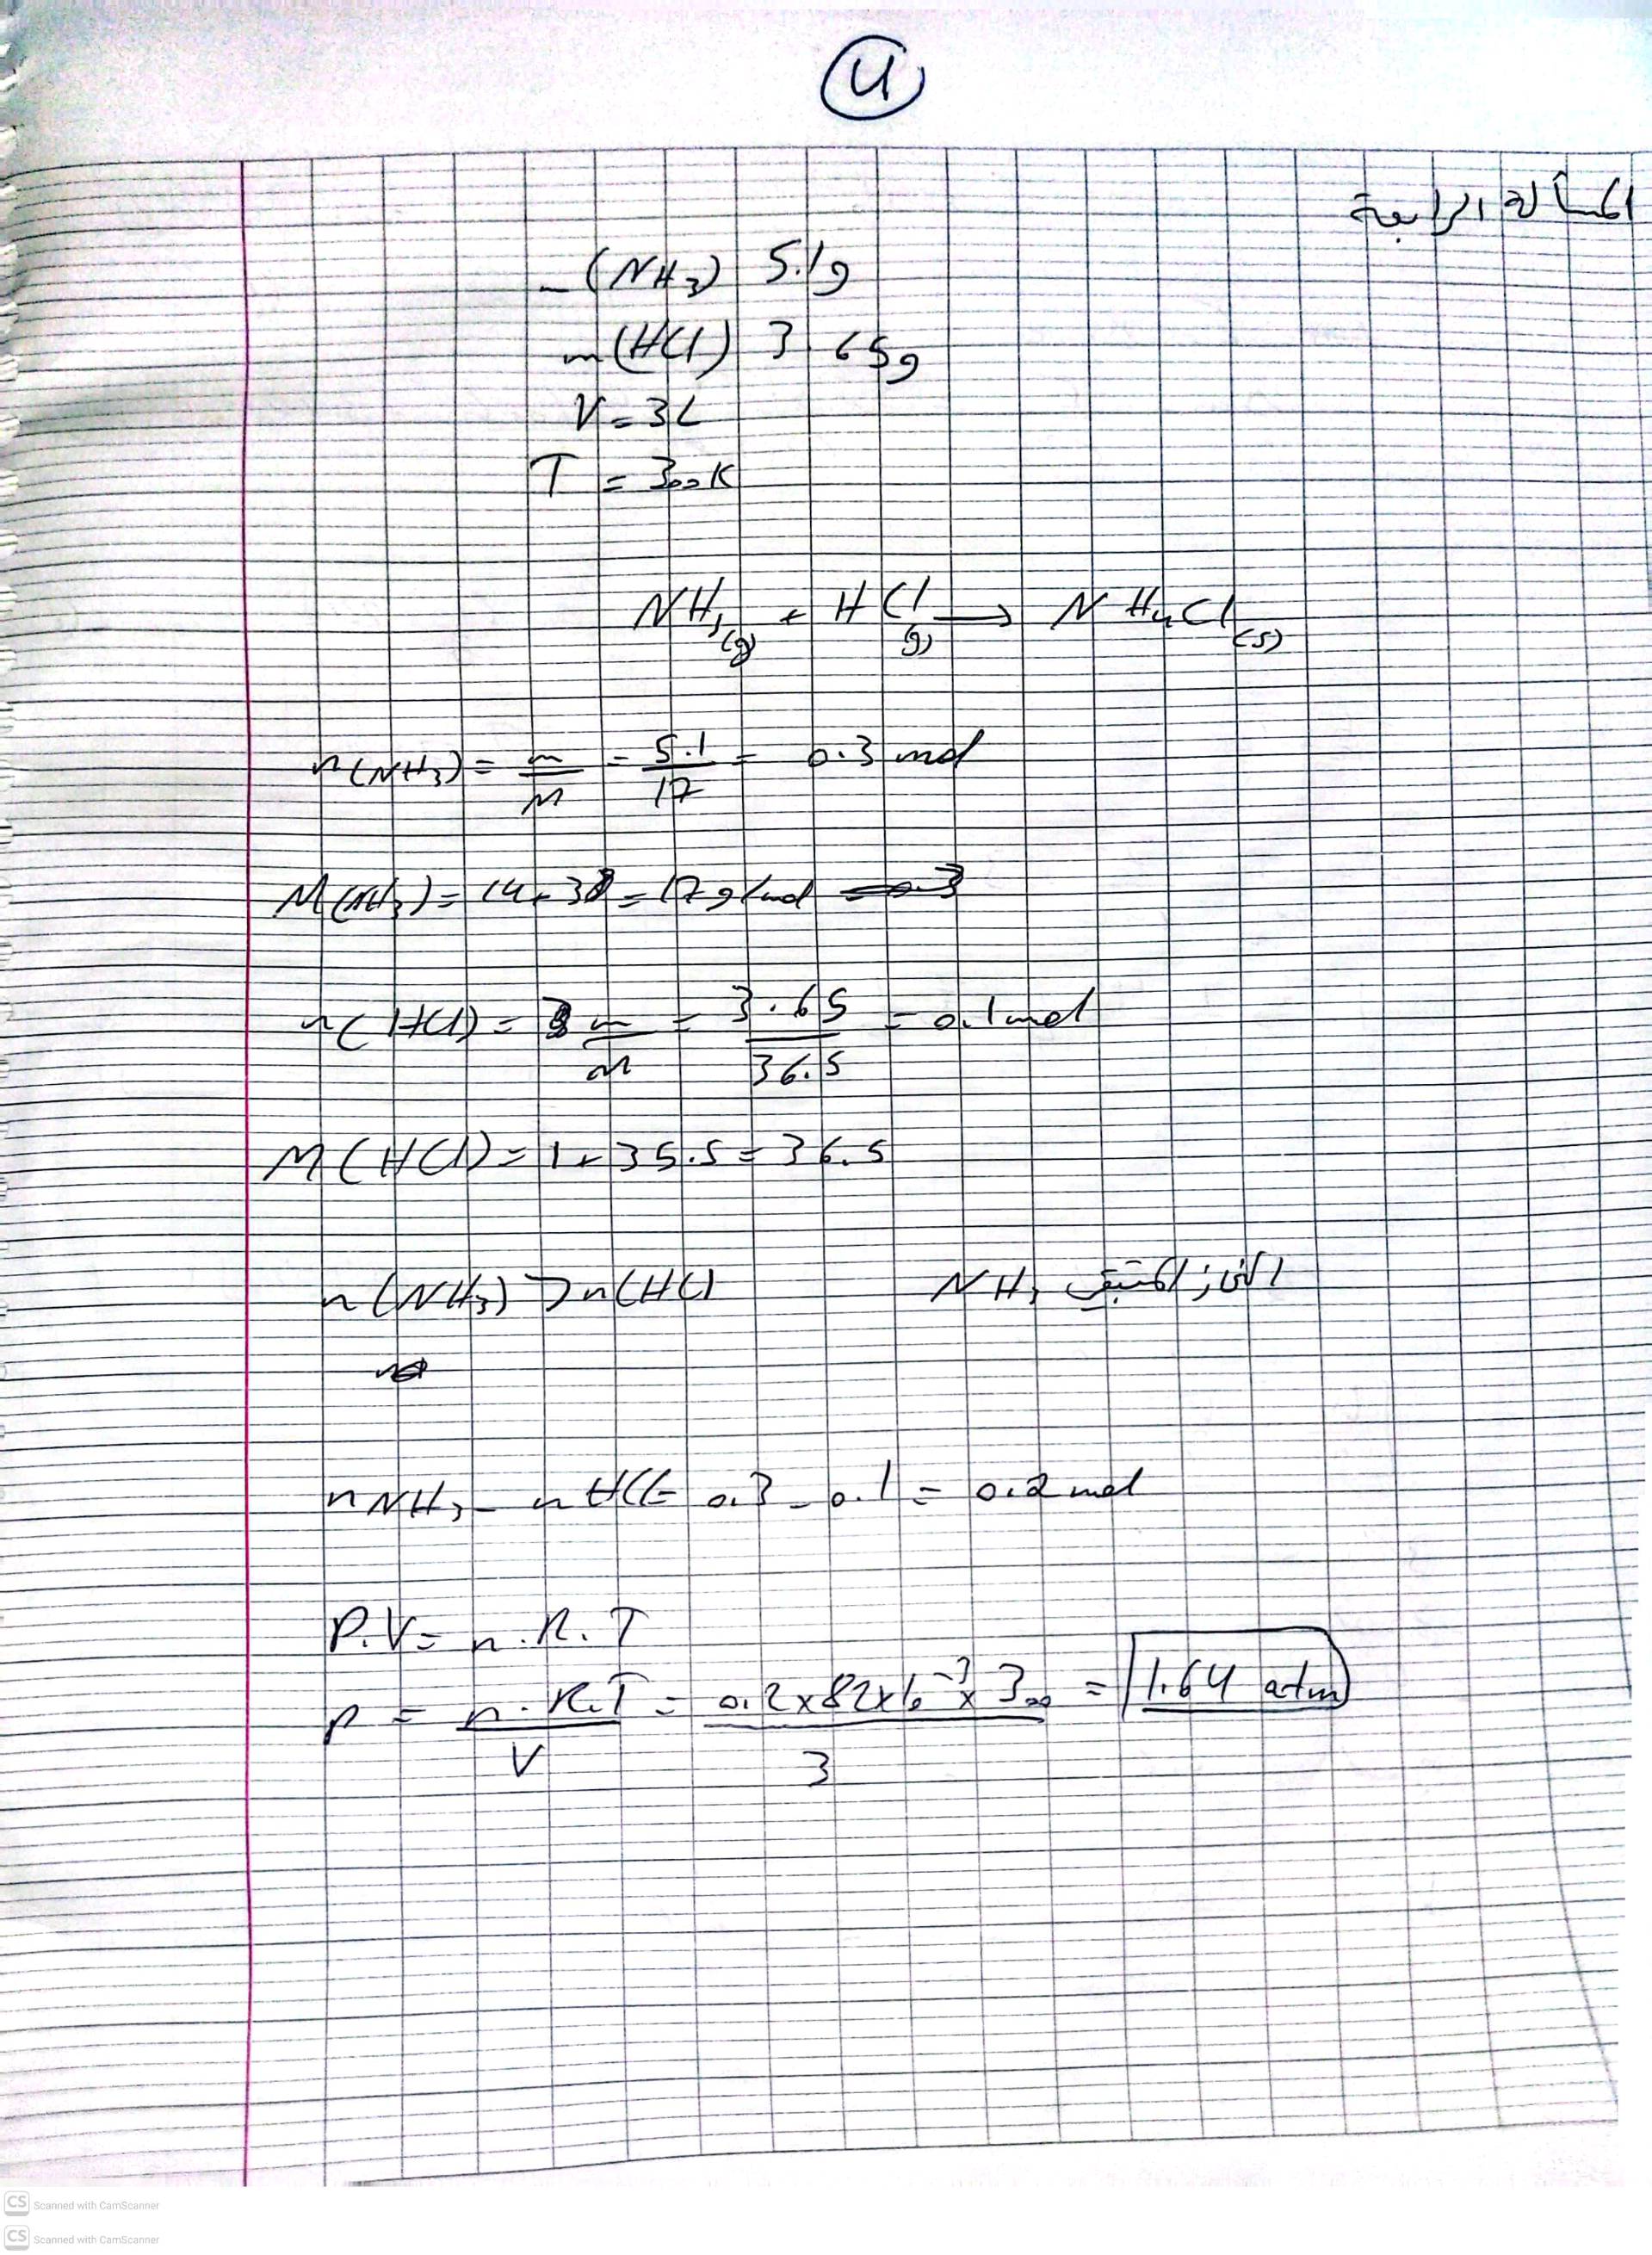 4
المسألة الرابعة
m(NH₃) 5.1g
m(HCl) 3.65g
V = 3L
T = 300K
NH₃(g) + HCl(g) → NH₄Cl(s)
n(NH₃) = m/M = 5.1/17 = 0.3 mol
M(NH₃) = 14+3 = 17g/mol
n(HCl) = m/M = 3.65/36.5 = 0.1mol
M(HCl) = 1+35.5 = 36.5
n(NH₃) > n(HCl الغاز المتبقي NH₃
nNH₃ - nHCl = 0.3 - 0.1 = 0.2mol
P.V = n.R.T
P = n.R.T/V = 0.2×82×10⁻³×300/3 = 1.64 atm
CS Scanned with CamScanner
CS Scanned with CamScanner